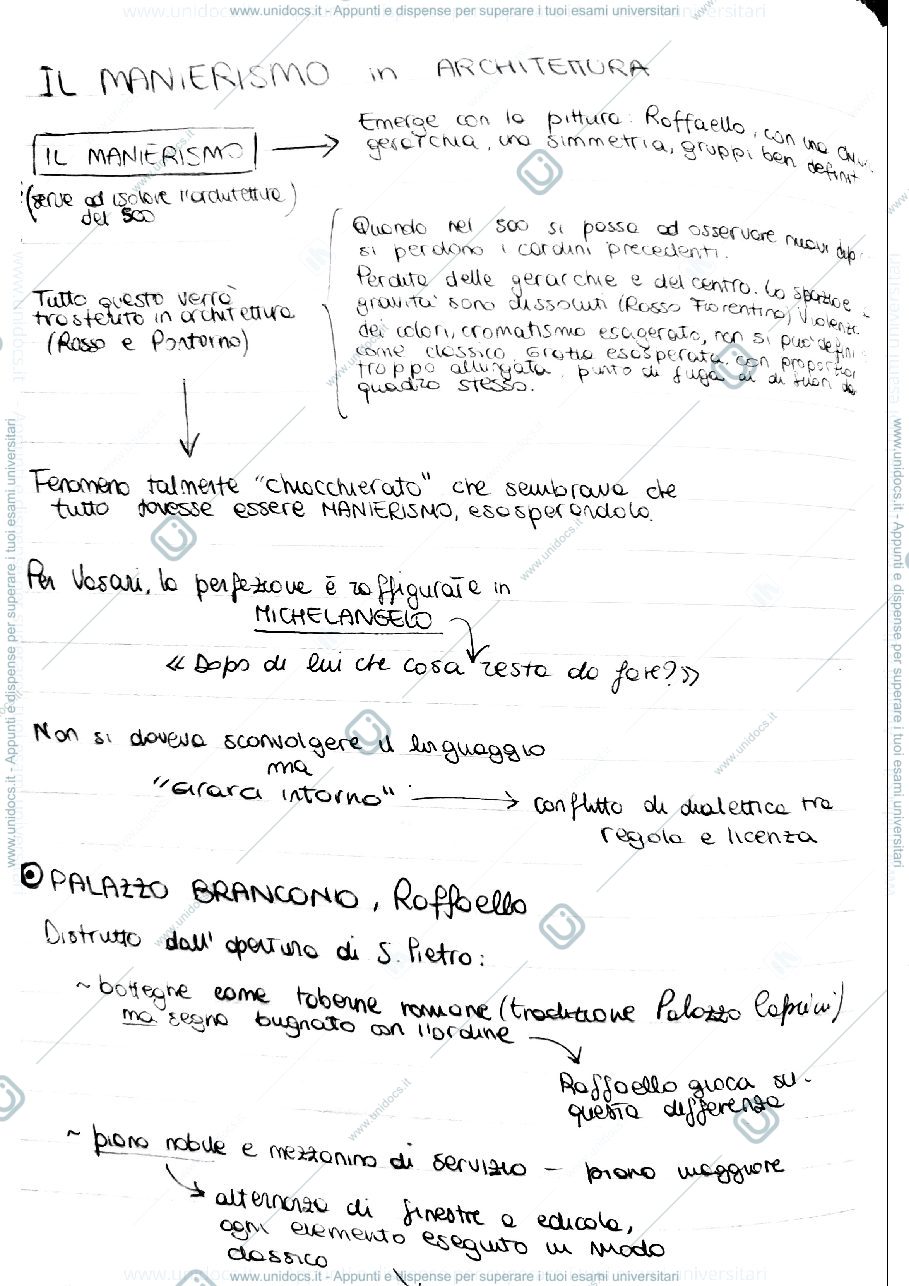 www.unidocs.it - Appunti e dispense per superare i tuoi esami universitari
IL MANIERISMO in ARCHITETTURA
IL MANIERISMO
(serve ad isolare l'architettura
del 500
Emerge con la pittura: Raffaello, con una
gerarchia, una simmetria, gruppi ben definit
Quando nel 500 si passa ad osservare nuovi dip
si perdono i cardini precedenti.
Perdita delle gerarchie e del centro. Lo spazio e
gravità sono dissoluti (Rosso Fiorentino) Violenz
dei colori, cromatismo esagerato, non si può defini
come classico. Grazia esasperata con proporzion
troppo allungata, punto di fuga al di fuori da
quadro stesso.
Tutto questo verrà
trasferito in architettura
(Rosso e Pontormo)
Fenomeno talmente "chiacchierato" che sembrava che
tutto dovesse essere MANIERISMO, esasperandolo.
Per Vasari, la perfezione è raffigurate in
MICHELANGELO
« Dopo di lui che cosa resta da fare?»
Non si doveva sconvolgere il linguaggio
ma
"Girarci intorno"
conflitto di dialettica tra
regola e licenza
PALAZZO BRANCONIO, Raffaello
Distrutto dall' apertura di S. Pietro:
~ botteghe come taberne romane (tradizione Palazzo Caprini)
ma segno bugnato con l'ordine
Raffaello gioca su
questa differenza
~ piano nobile e mezzanino di servizio - piano maggiore
alternanza di finestre a edicola,
ogni elemento eseguito in modo
classico
www.unidocs.it - Appunti e dispense per superare i tuoi esami universitari